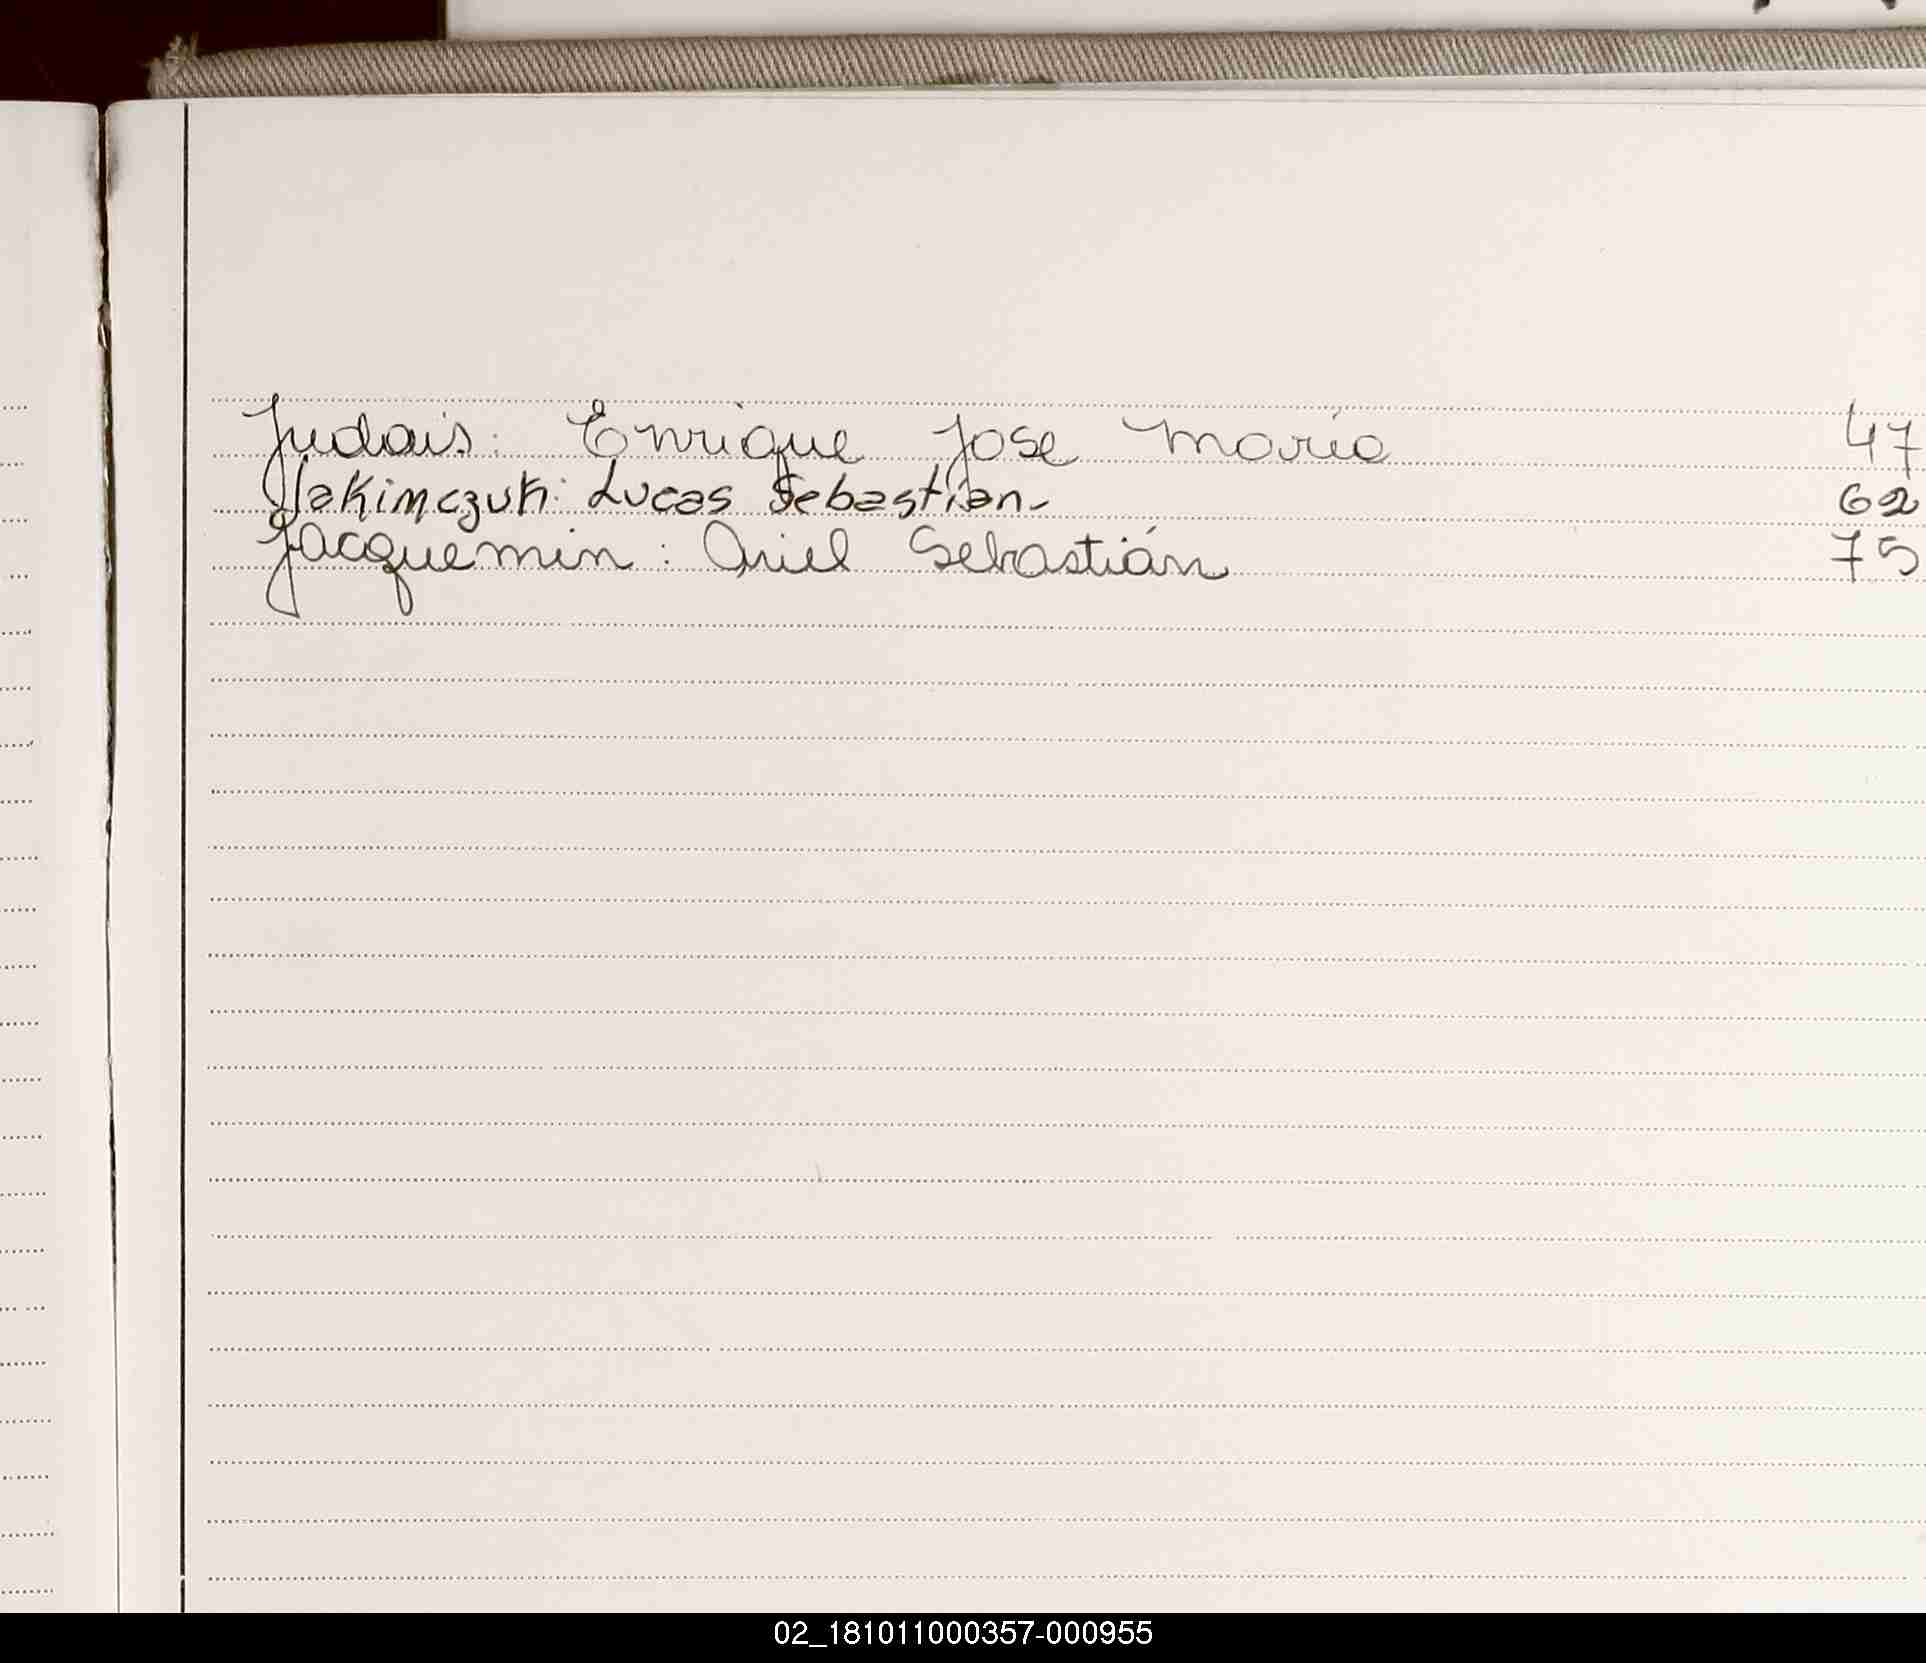 Judais: Enrique Jose Maria 47
Jakimczuk: Lucas Sebastian- 62
Jacquemin: Ariel Sebastián 75
02_181011000357-000955